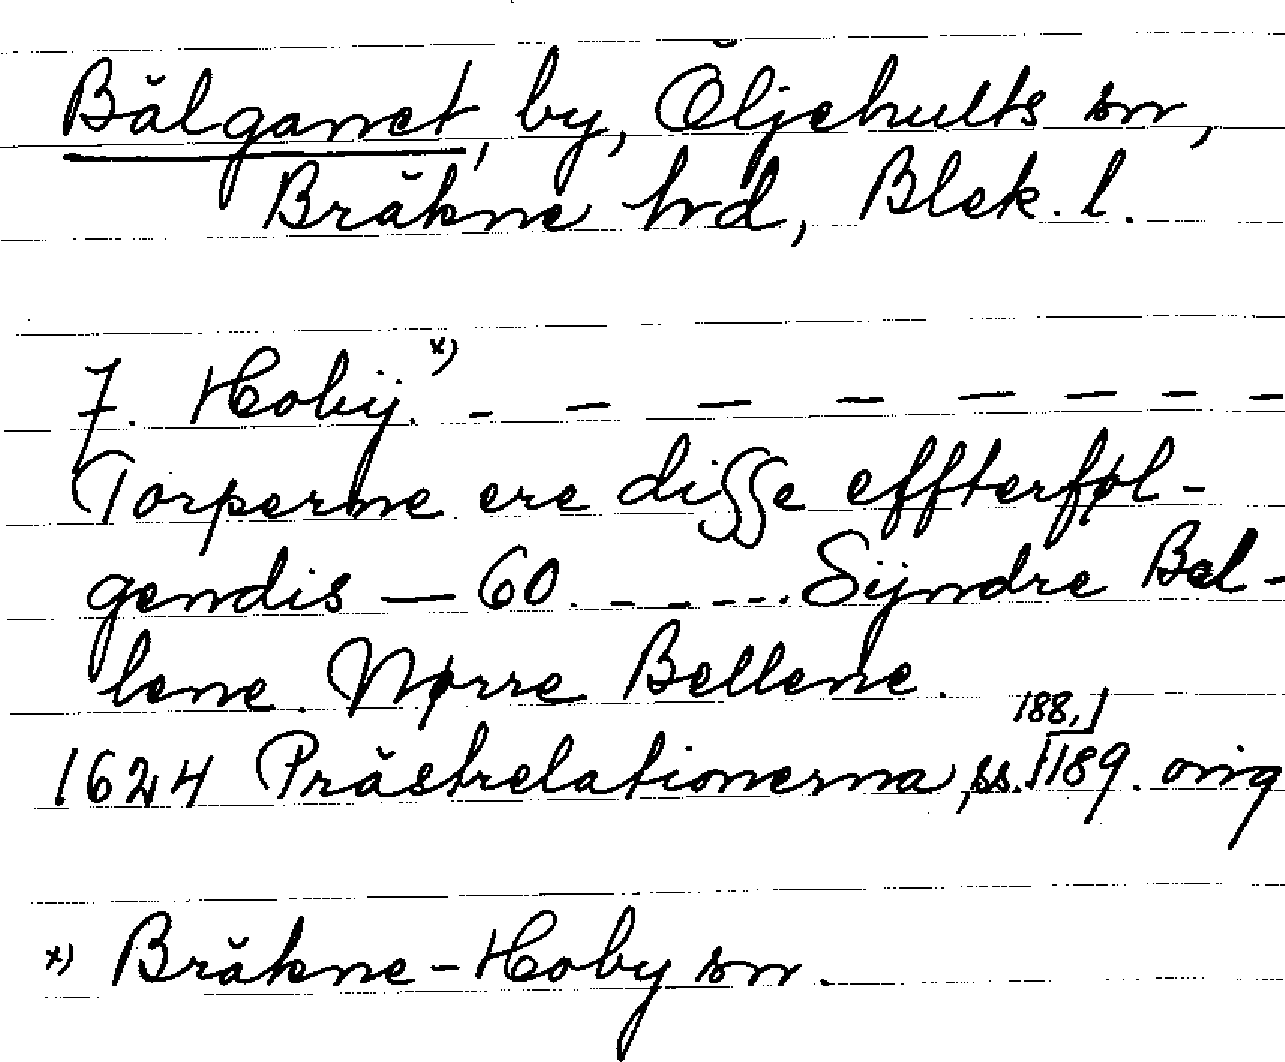 Bälganet, by, Öljehults sn,
Bräkne hrd, Blek. l.
7. Hobÿ.x) - — — — — — — —
Torperne ere disse effterføl-
gendis — 60. - - - - -. Sÿndre Bel-
lene. Nørre Bellene.
1624 Prästrelationerna, ss. 188, 189. orig
x) Bräkne-Hoby sn.